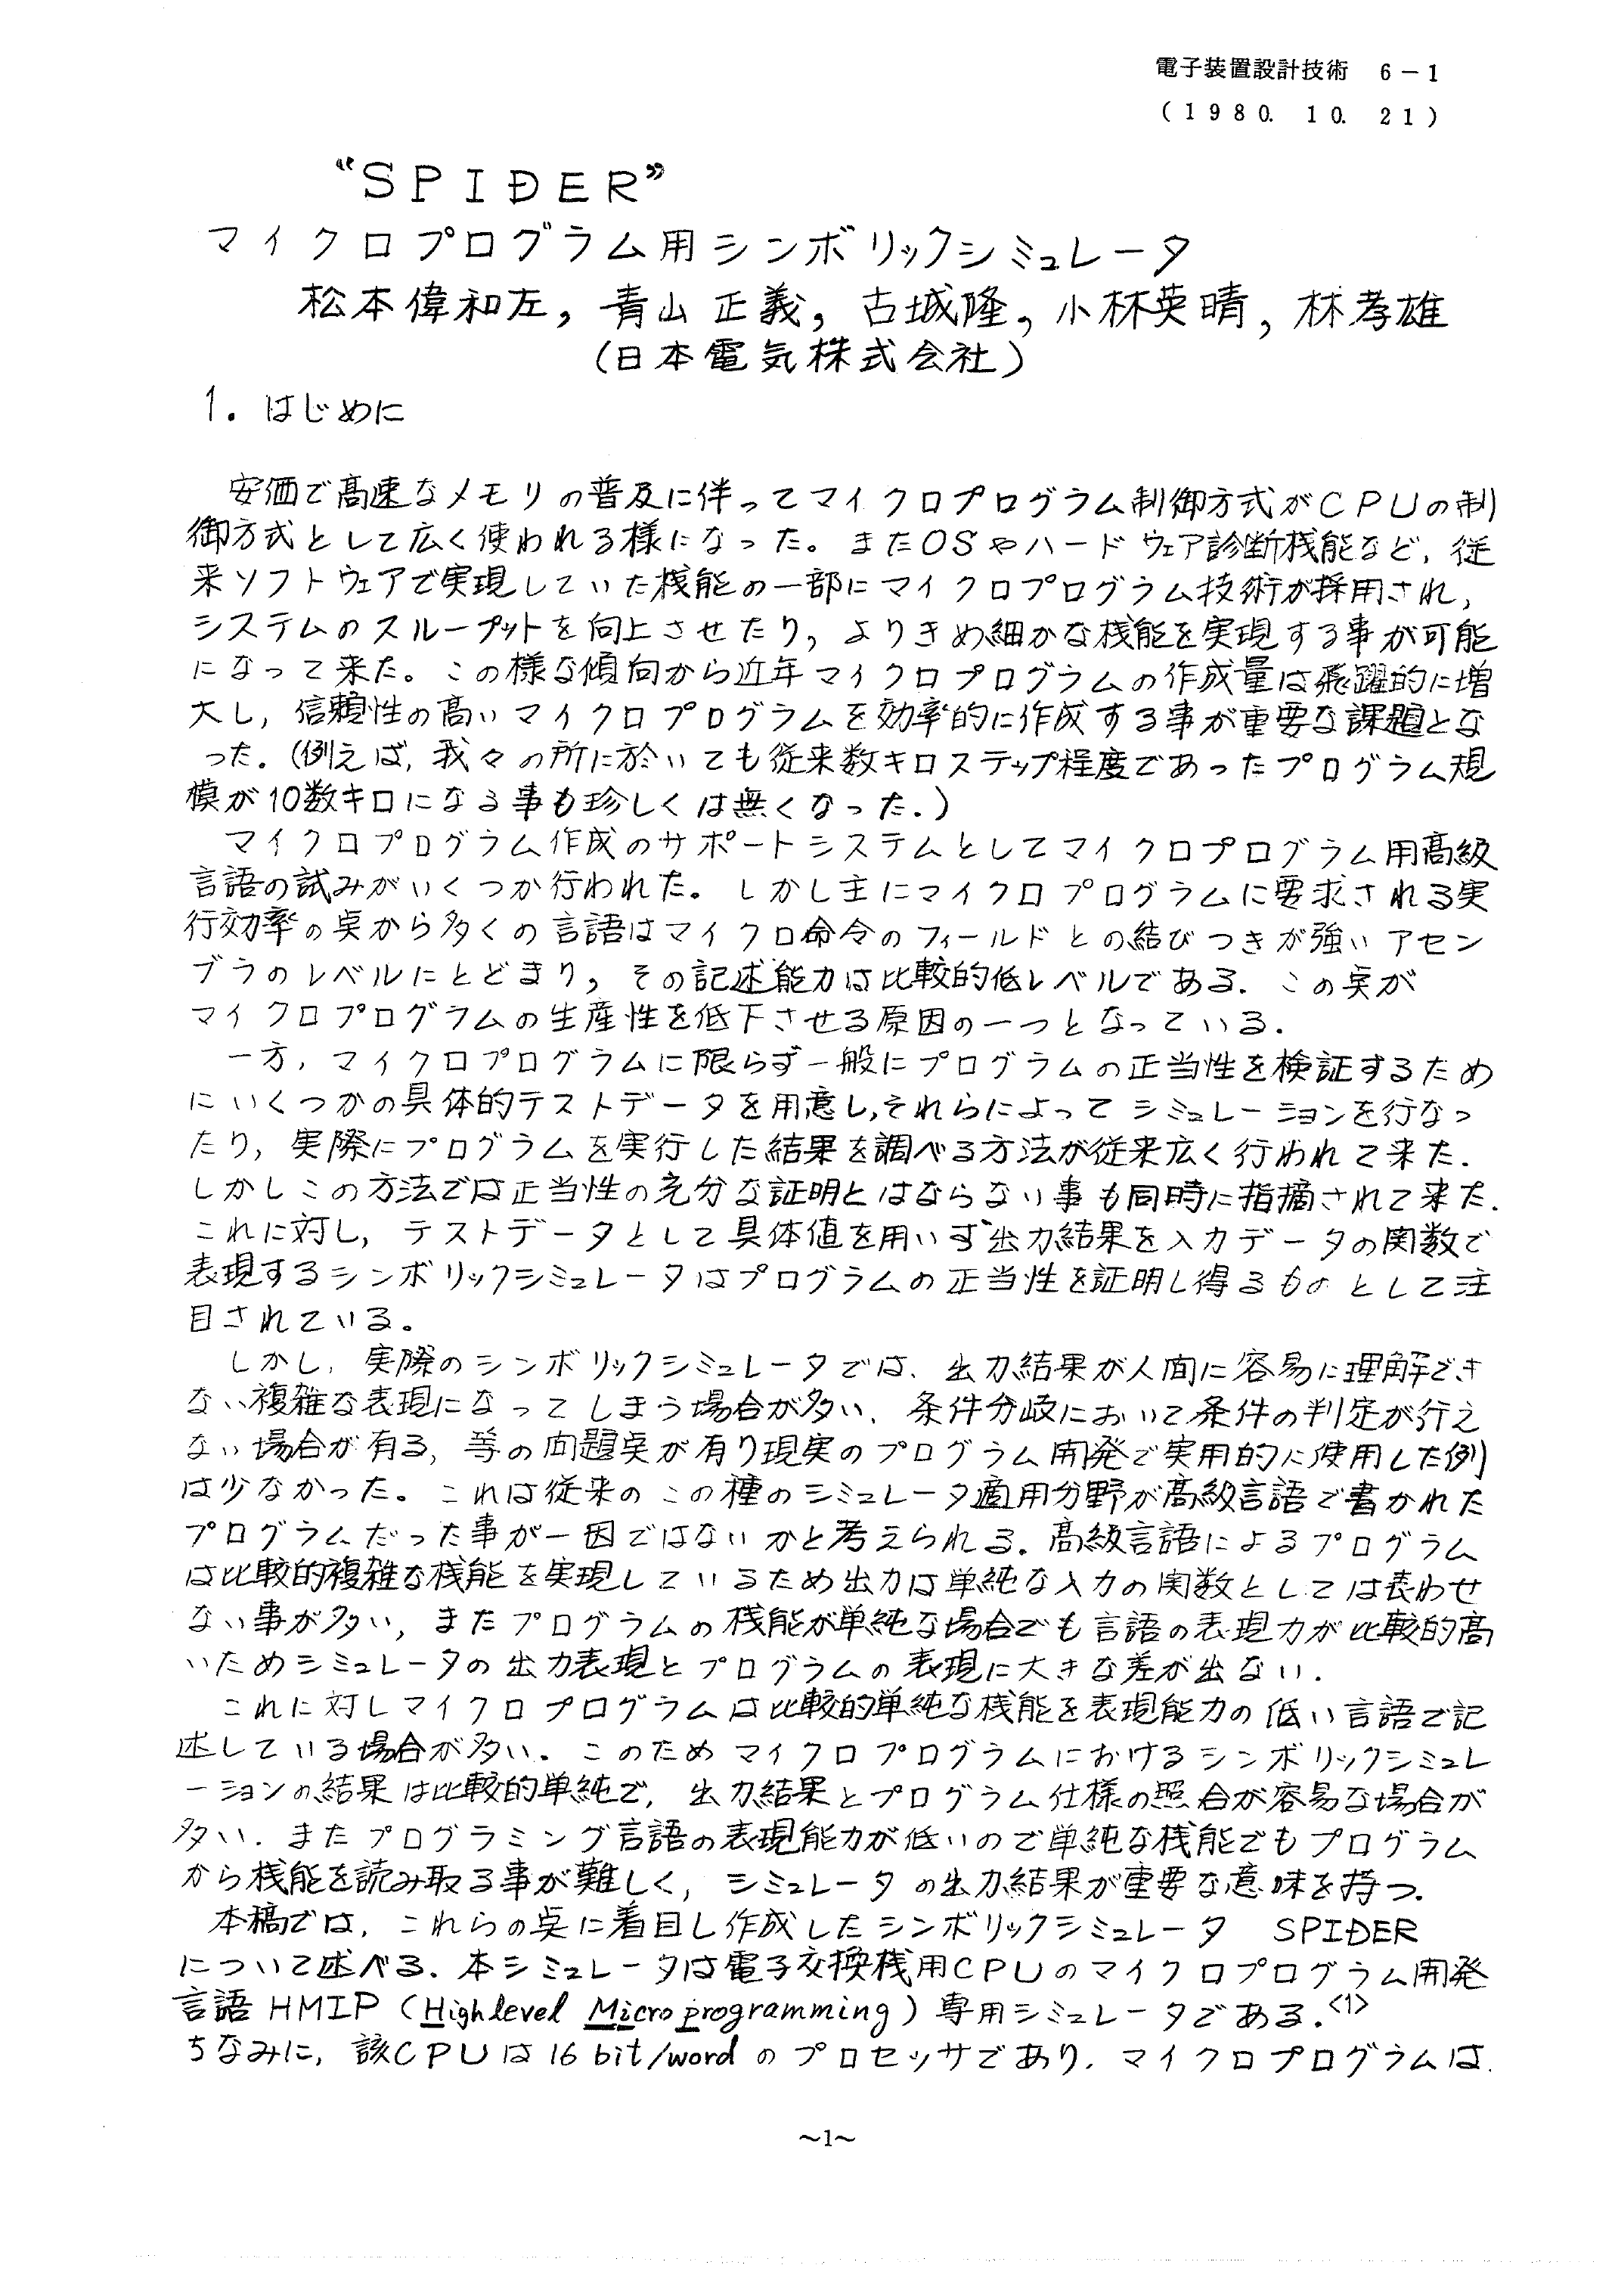 電子装置設計技術 6-1
(1980. 10. 21)
"SPIDER"
マイクロプログラム用シンボリックシミュレータ
松本偉和左, 青山正義, 古城隆, 小林英晴, 林孝雄
(日本電気株式会社)
1. はじめに
安価で高速なメモリの普及に伴ってマイクロプログラム制御方式がCPUの制
御方式として広く使われる様になった。またOSやハードウェア診断機能など, 従
来ソフトウェアで実現していた機能の一部にマイクロプログラム技術が採用され,
システムのスループットを向上させたり, よりきめ細かな機能を実現する事が可能
になって来た。この様な傾向から近年マイクロプログラムの作成量は飛躍的に増
大し, 信頼性の高いマイクロプログラムを効率的に作成する事が重要な課題とな
った.(例えば, 我々の所に於いても従来数キロステップ程度であったプログラム規
模が10数キロになる事も珍しくは無くなった.)
マイクロプログラム作成のサポートシステムとしてマイクロプログラム用高級
言語の試みがいくつか行われた。しかし主にマイクロプログラムに要求される実
行効率の点から多くの言語はマイクロ命令のフィールドとの結びつきが強いアセン
ブラのレベルにとどまり, その記述能力は比較的低レベルである. この点が
マイクロプログラムの生産性を低下させる原因の一つとなっている.
一方, マイクロプログラムに限らず一般にプログラムの正当性を検証するため
にいくつかの具体的テストデータを用意し,それらによってシミュレーションを行なっ
たり, 実際にプログラムを実行した結果を調べる方法が従来広く行われて来た.
しかしこの方法では正当性の充分な証明とはならない事も同時に指摘されて来た.
これに対し, テストデータとして具体値を用いず出力結果を入力データの関数で
表現するシンボリックシミュレータはプログラムの正当性を証明し得るものとして注
目されている。
しかし, 実際のシンボリックシミュレータでは, 出力結果が人間に容易に理解でき
ない複雑な表現になってしまう場合が多い, 条件分岐において条件の判定が行え
ない場合が有る, 等の問題点が有り現実のプログラム開発で実用的に使用した例
は少なかった。これは従来のこの種のシミュレータ適用分野が高級言語で書かれた
プログラムだった事が一因ではないかと考えられる. 高級言語によるプログラム
は比較的複雑な機能を実現しているため出力は単純な入力の関数としては表わせ
ない事が多い, またプログラムの機能が単純な場合でも言語の表現力が比較的高
いためシミュレータの出力表現とプログラムの表現に大きな差が出ない.
これに対しマイクロプログラムは比較的単純な機能を表現能力の低い言語で記
述している場合が多い. このためマイクロプログラムにおけるシンボリックシミュレ
ーションの結果は比較的単純で, 出力結果とプログラム仕様の照合が容易な場合が
多い. またプログラミング言語の表現能力が低いので単純な機能でもプログラム
から機能を読み取る事が難しく, シミュレータの出力結果が重要な意味を持つ.
本稿では, これらの点に着目し作成したシンボリックシミュレータ SPIDER
について述べる. 本シミュレータは電子交換機用CPUのマイクロプログラム開発
言語 HMIP (Highlevel Micro programming) 専用シミュレータである.<1>
ちなみに, 該CPUは16 bit/wordのプロセッサであり, マイクロプログラムは
~1~